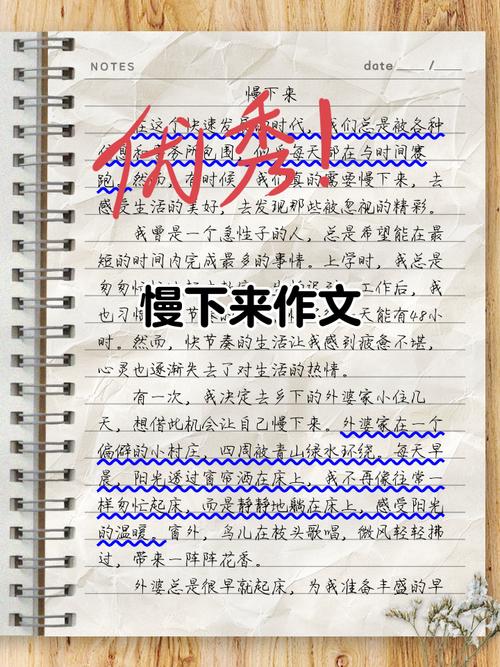 NOTES
date / 
慢下来
在这个快速发展的时代，我们总是被各种
信息和事务所包围，似乎每天都在与时间赛
跑。然而，有时候，我们真的需要慢下来，去
感受生活的美好，去发现那些被忽视的精彩。
优秀！
我曾是一个急性子的人，总是希望能在最
短的时间内完成最多的事情。上学时，我总是
匆匆忙忙
工作后，我
也习惯 节 天能有48小
慢下来作文
时。然而，快节奏的生活让我感到疲惫不堪，
心灵也逐渐失去了对生活的热情。
有一次，我决定去乡下的外婆家小住几
天，想借此机会让自己慢下来。外婆家在一个
偏僻的小村庄，四周被青山绿水环绕。每天早
晨，阳光透过窗帘洒在床上，我不再像往常一
样匆忙起床，而是静静地躺在床上，感受阳光
的温暖。窗外，鸟儿在枝头歌唱，微风轻轻拂
过，带来一阵阵花香。
外婆总是很早就起床，为我准备丰盛的早